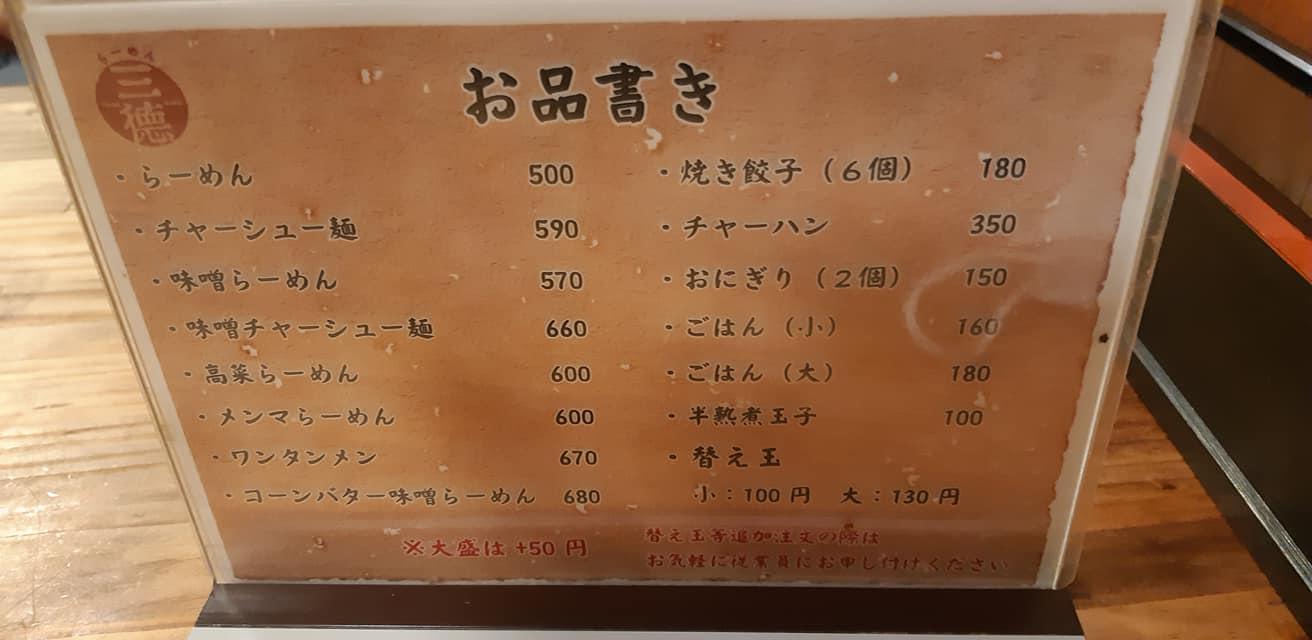 らーめん
三徳
お品書き
・らーめん 500
・チャーシュー麺 590
・味噌らーめん 570
・味噌チャーシュー麺 660
・高菜らーめん 600
・メンマらーめん 600
・ワンタンメン 670
・コーンバター味噌らーめん 680
※大盛は +50 円
・焼き餃子（６個） 180
・チャーハン 350
・おにぎり（２個） 150
・ごはん（小） 160
・ごはん（大） 180
・半熟煮玉子 100
・替え玉
小：100 円 大：130 円
替え玉等追加注文の際は
お気軽に従業員にお申し付けください